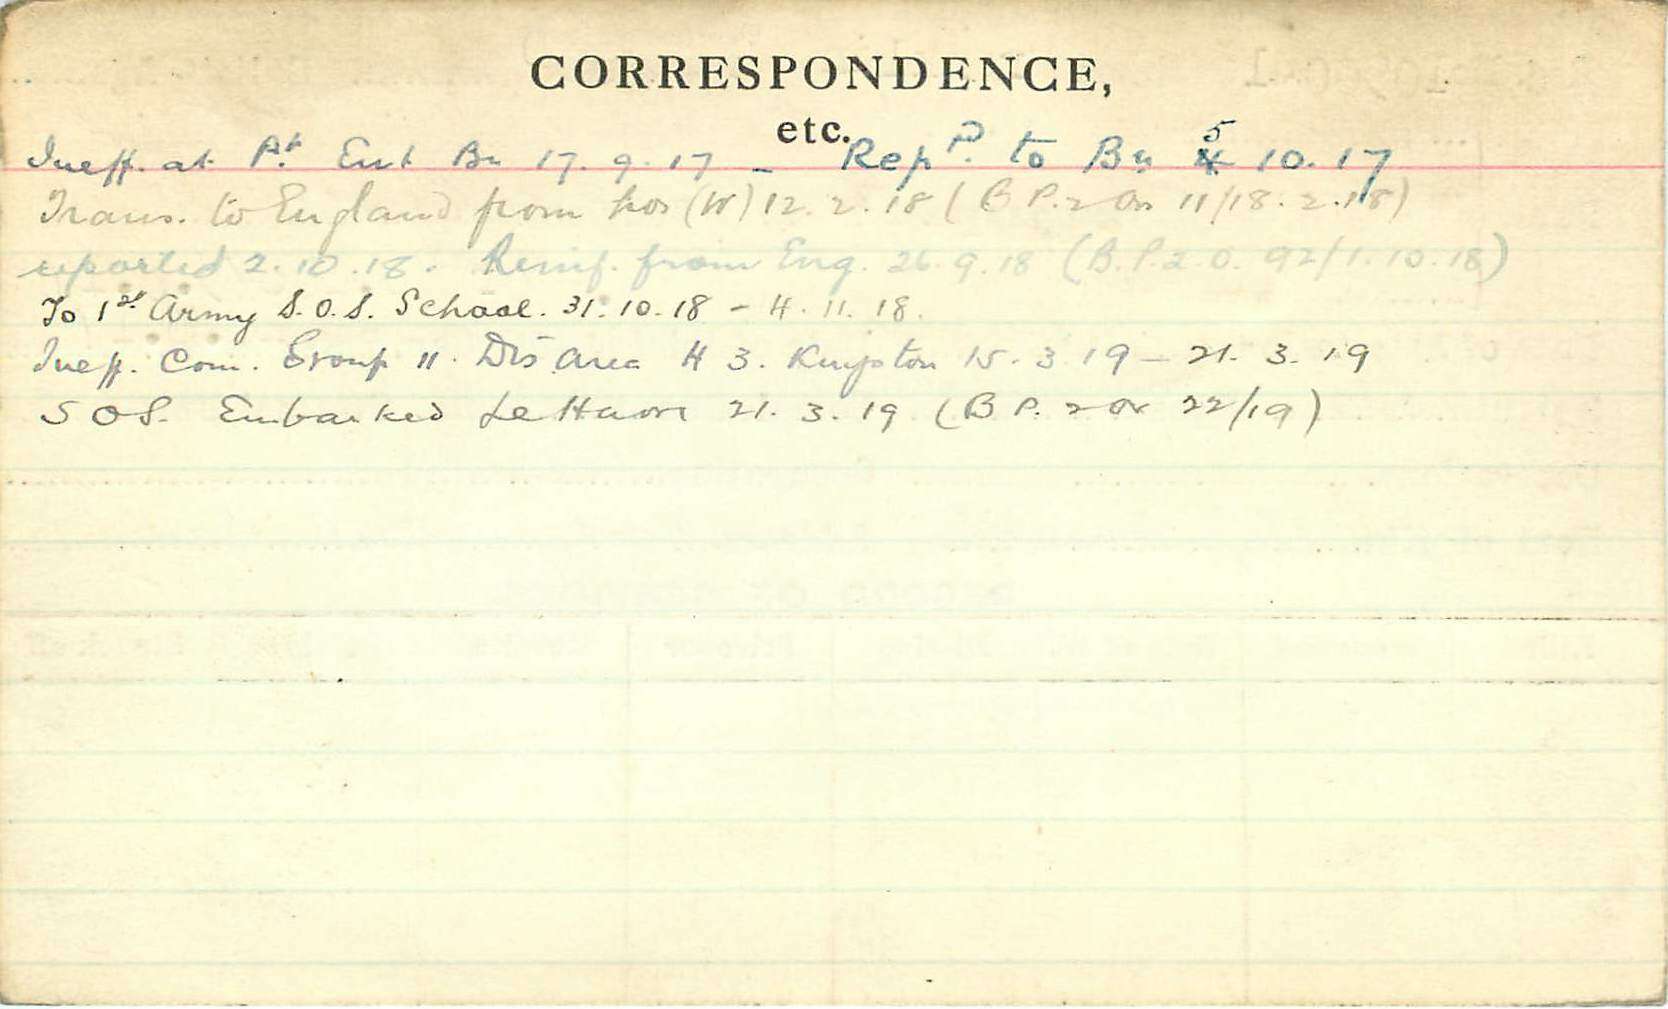 CORRESPONDENCE,
etc.
Ineff. at Pt. Ent Bn 17.9.17 - Repd. to Bn 5 10.17
Trans. to England from hos (W) 12.2.18 (B P.2 On 11/18.2.18)
reported 2.10.18. Reinf. from Eng. 26.9.18 (B.P.2 O. 92/1.10.18)
To 1st Army S.O.S. School. 31.10.18 - 4.11.18.
Ineff. Com. Group 11. Dis Area H 3. Kingston 15.3.19 - 21.3.19
SOS. Embarked Le Havre 21.3.19 (B P. 2 Or 22/19)